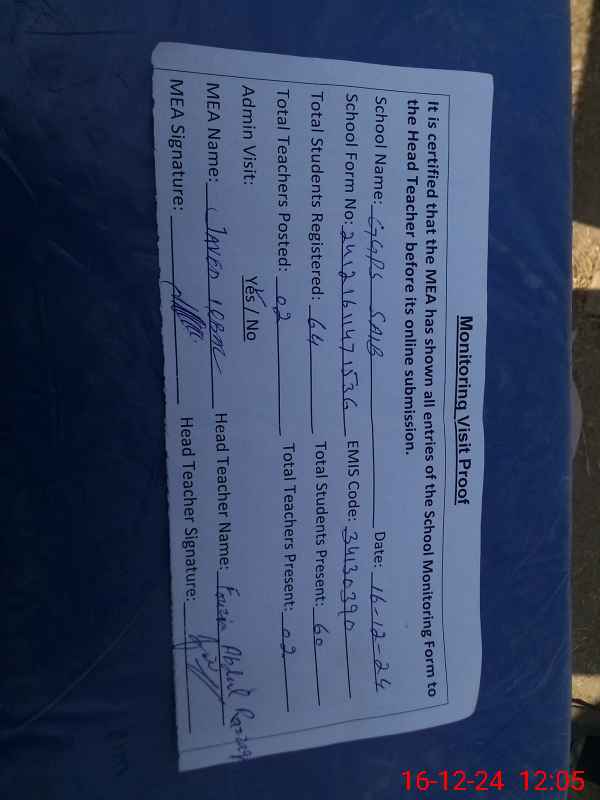 Monitoring Visit Proof
It is certified that the MEA has shown all entries of the School Monitoring Form to
the Head Teacher before its online submission.
School Name: GGPS SAIB Date: 16-12-24
School Form No: 24121611471536 EMIS Code: 34130390
Total Students Registered: 64 Total Students Present: 60
Total Teachers Posted: 02 Total Teachers Present: 02
Admin Visit: Yes / No
MEA Name: JAVED IQBAL Head Teacher Name: Fouzia Abdul Razzaq
MEA Signature: Head Teacher Signature:
16-12-24 12:05